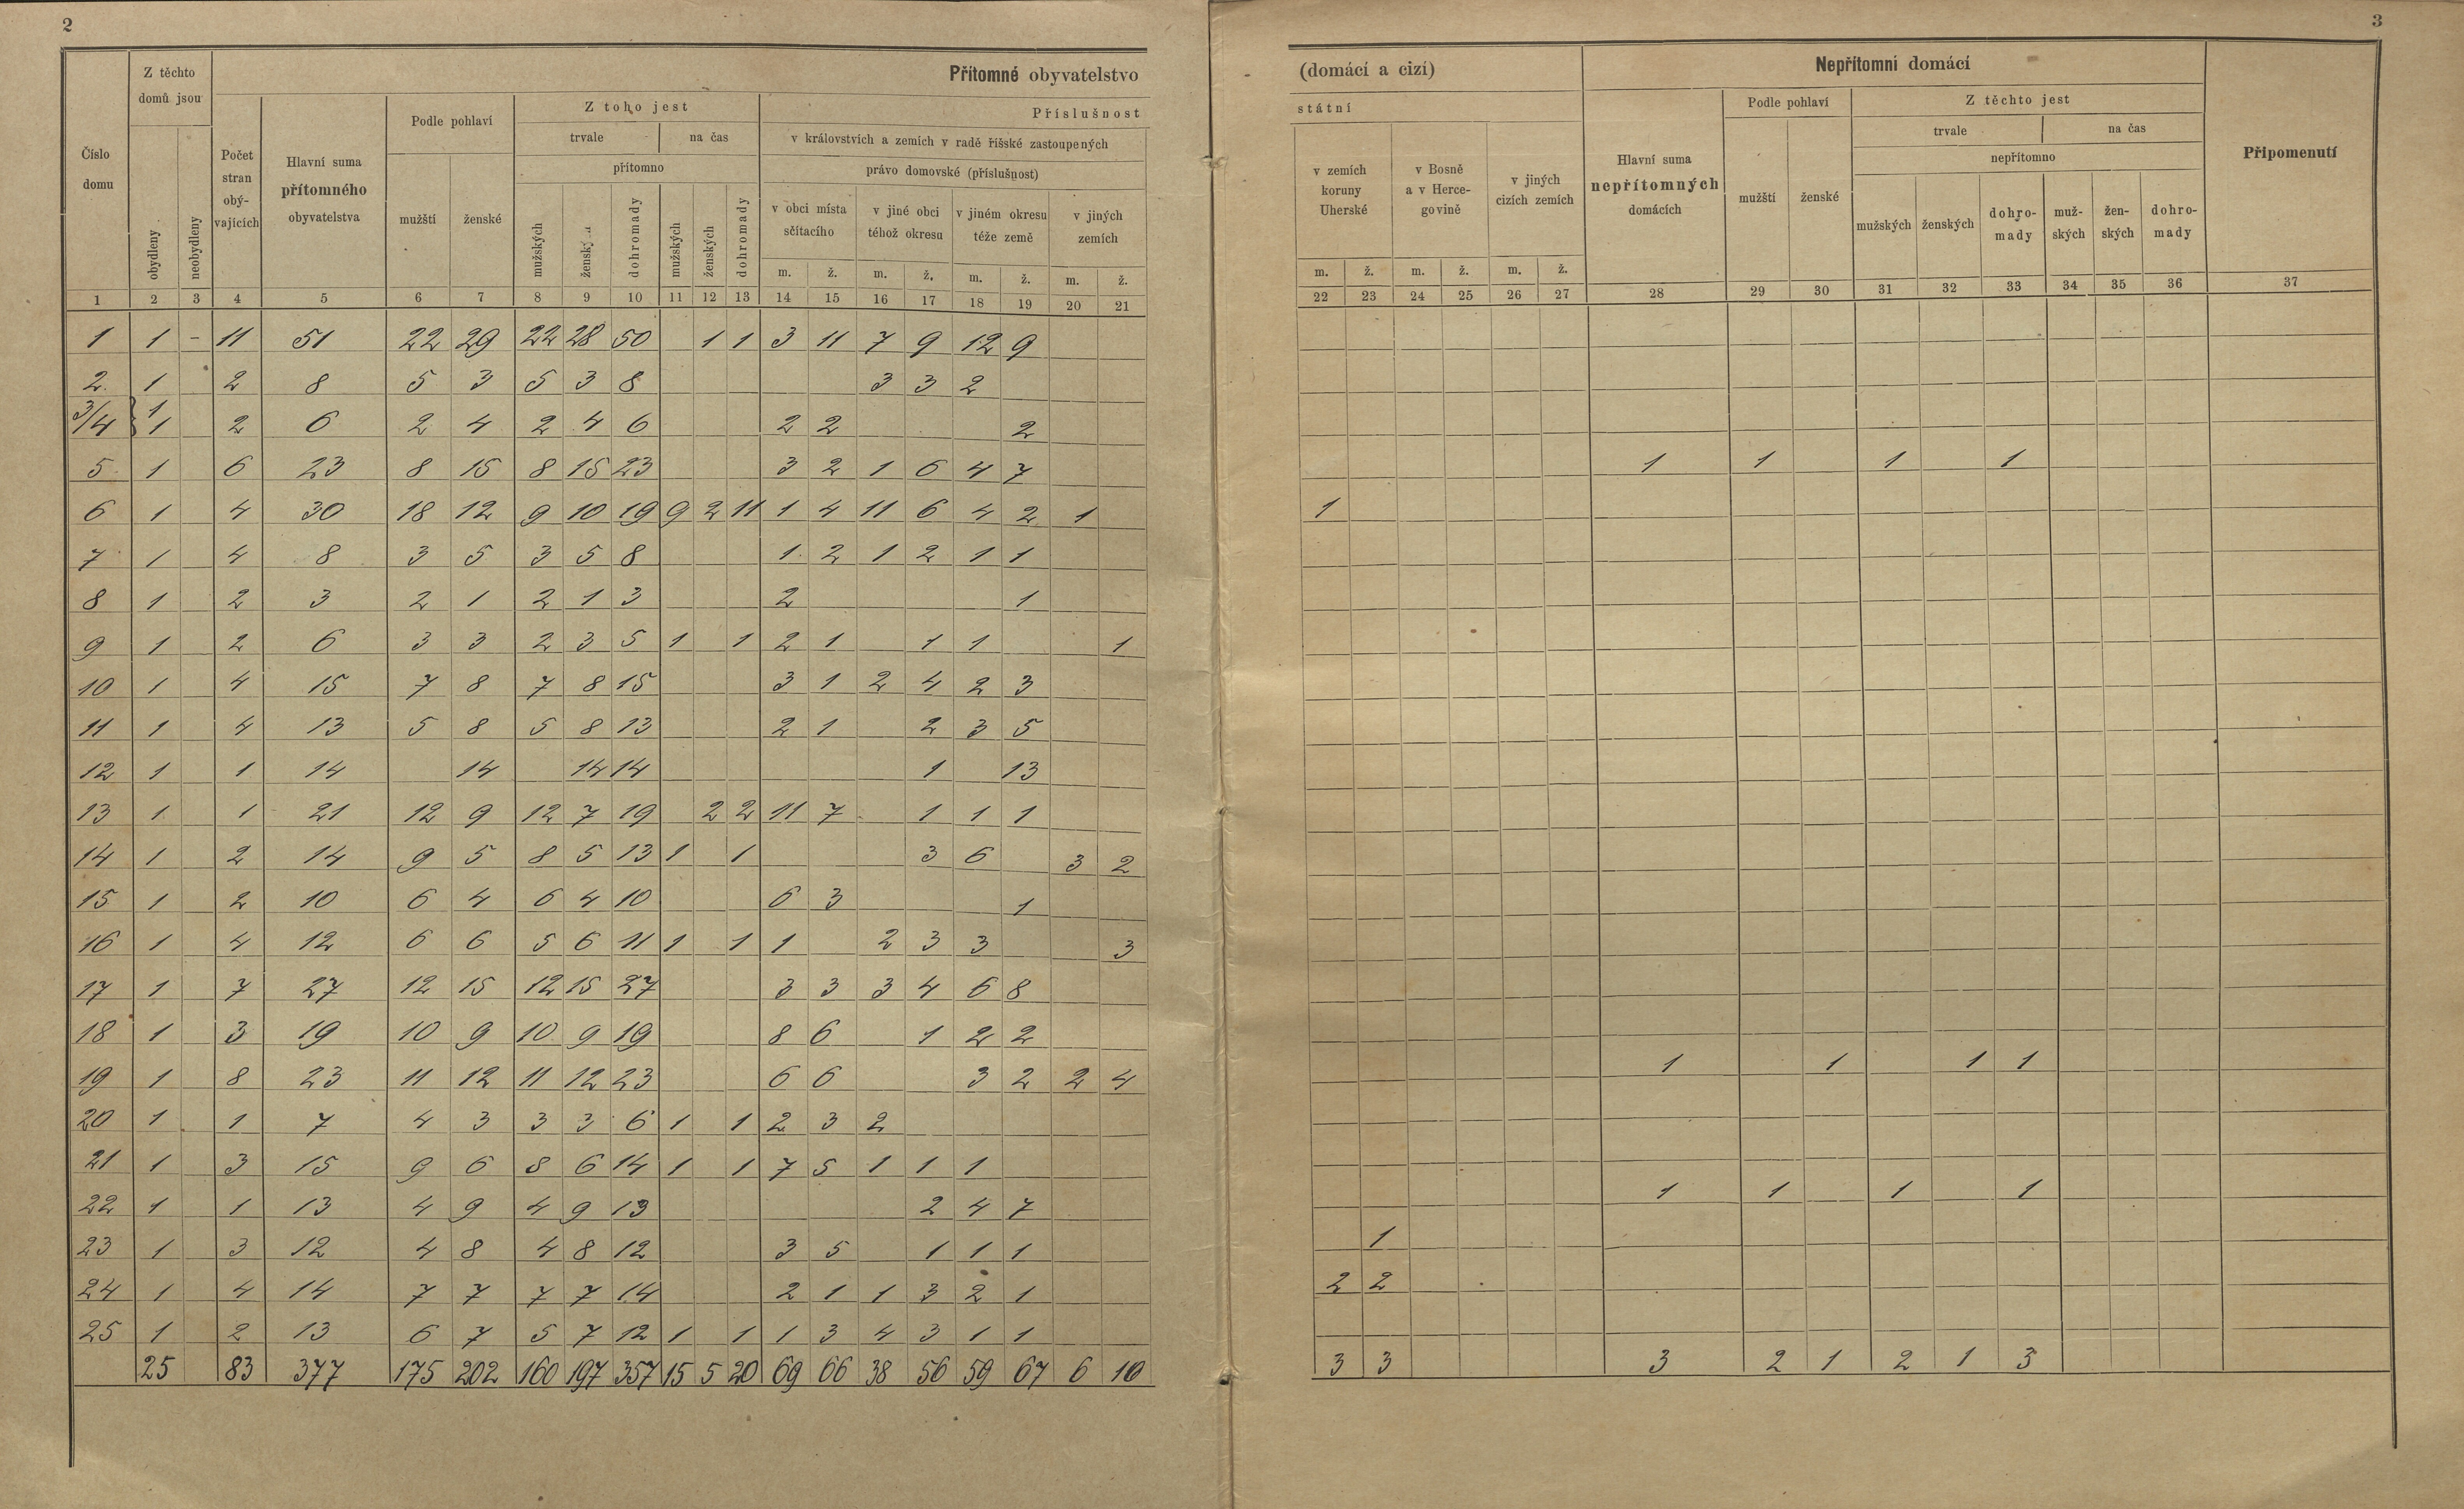 2
Přítomné obyvatelstvo
Z těchto domů jsou
Číslo domu
obydleny
neobydleny
Počet stran obývajících
Hlavní suma přítomného obyvatelstva
Podle pohlaví
mužští ženské
Z toho jest
trvale na čas
přítomno
mužských dohromady mužských ženských dohromady
Příslušnost
v královstvích a zemích v radě říšské zastoupených
právo domovské (příslušnost)
v obci místa sčítacího
v jiné obci téhož okresu
v jiném okresu téže země
v jiných zemích
m. ž. m. ž. m. ž. m. ž.
1 2 3 4 5 6 7 8 9 10 11 12 13 14 15 16 17 18 19 20 21
1 1 - 11 51 22 29 22 28 50 1 1 3 11 7 9 12 9
2 1 2 8 5 3 5 3 8 3 3 2
3/4 } 1 1 2 6 2 4 2 4 6 2 2 2
5 1 6 23 8 15 8 15 23 3 2 1 6 4 7
6 1 4 30 18 12 9 10 19 9 2 11 1 4 11 6 4 2 1
7 1 4 8 3 5 3 5 8 1 2 1 2 1 1
8 1 2 3 2 1 2 1 3 2 1
9 1 2 6 3 3 2 3 5 1 1 2 1 1 1 1
10 1 4 15 7 8 7 8 15 3 1 2 4 2 3
11 1 4 13 5 8 5 8 13 2 1 2 3 5
12 1 1 14 14 14 14 1 13
13 1 1 21 12 9 12 7 19 2 2 11 7 1 1 1
14 1 2 14 9 5 8 5 13 1 1 3 6 3 2
15 1 2 10 6 4 6 4 10 6 3 1
16 1 4 12 6 6 5 6 11 1 1 1 2 3 3 3
17 1 7 27 12 15 12 15 27 3 3 3 4 6 8
18 1 3 19 10 9 10 9 19 8 6 1 2 2
19 1 8 23 11 12 11 12 23 6 6 3 2 2 4
20 1 1 7 4 3 3 3 6 1 1 2 3 2
21 1 3 15 9 6 8 6 14 1 1 7 5 1 1 1
22 1 1 13 4 9 4 9 13 2 4 7
23 1 3 12 4 8 4 8 12 3 5 1 1 1
24 1 4 14 7 7 7 7 14 2 1 1 3 2 1
25 1 2 13 6 7 5 7 12 1 1 1 3 4 3 1 1
25 83 377 175 202 160 197 357 15 5 20 69 66 38 56 59 67 6 10
3
(domácí a cizí)
státní
v zemích koruny Uherské
v Bosně a v Hercegovině
v jiných cizích zemích
m. ž. m. ž. m. ž.
Nepřítomní domácí
Hlavní suma nepřítomných domácích
Podle pohlaví
mužští ženské
Z těchto jest
trvale na čas
nepřítomno
mužských ženských dohromady mužských ženských dohromady
Připomenutí
22 23 24 25 26 27 28 29 30 31 32 33 34 35 36 37
1 1 1 1
1
1 1 1 1
1 1 1 1
1
2 2
3 3 3 2 1 2 1 3